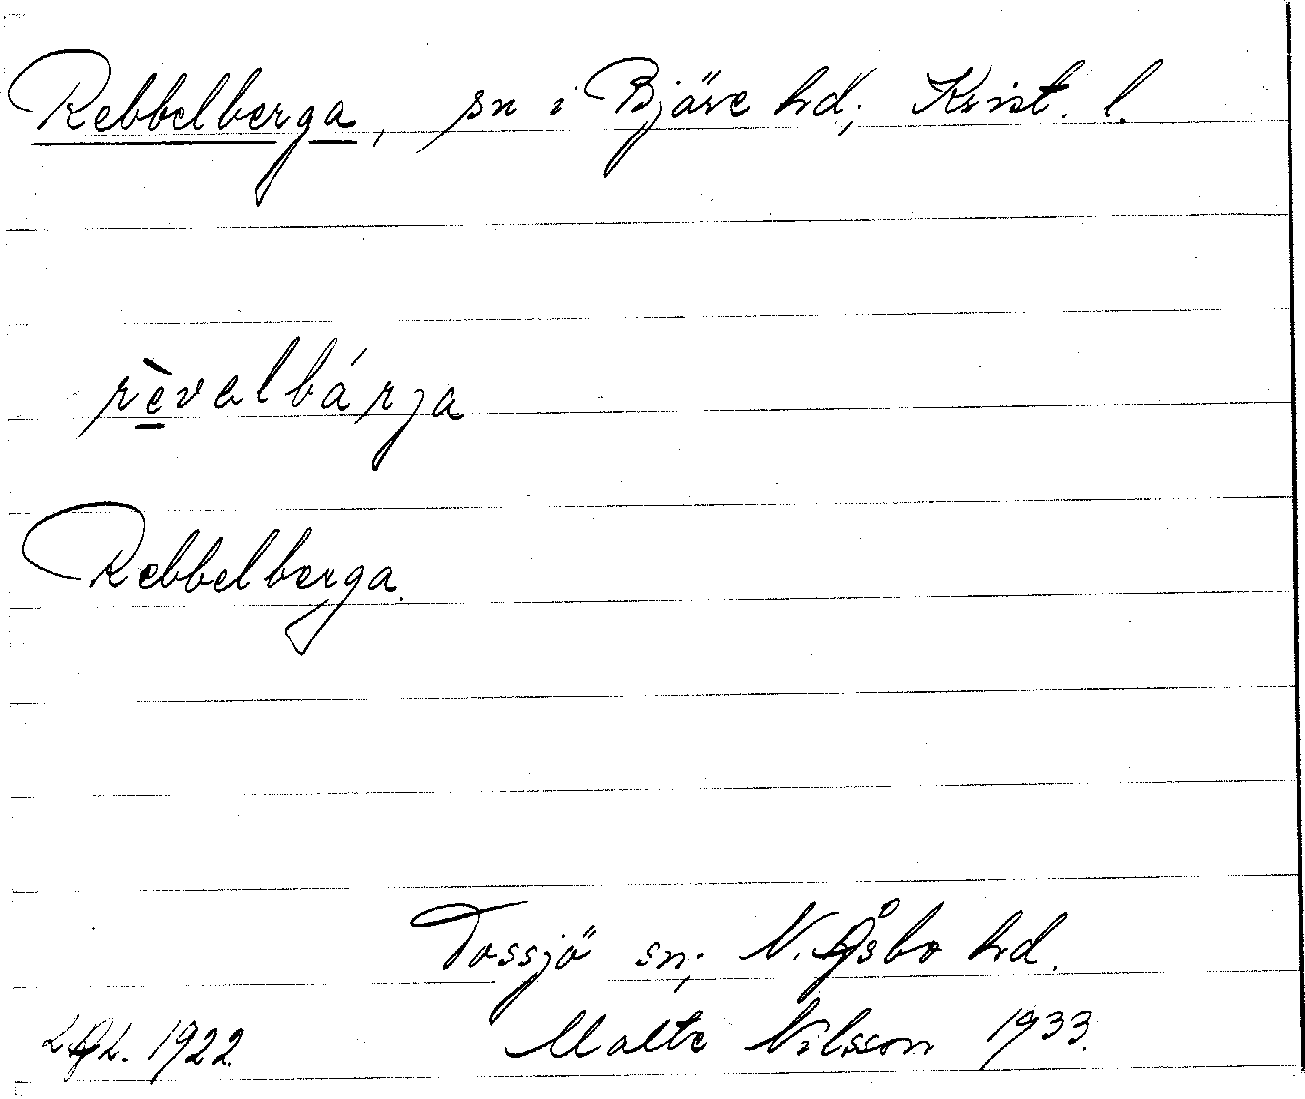 Rebbelberga, sn i Bjäre hd; Krist. l.
rèvalbárja
Rebbelberga.
Tossjö sn; N. Åsbo hd.
1922. Malte Nilsson 1933.